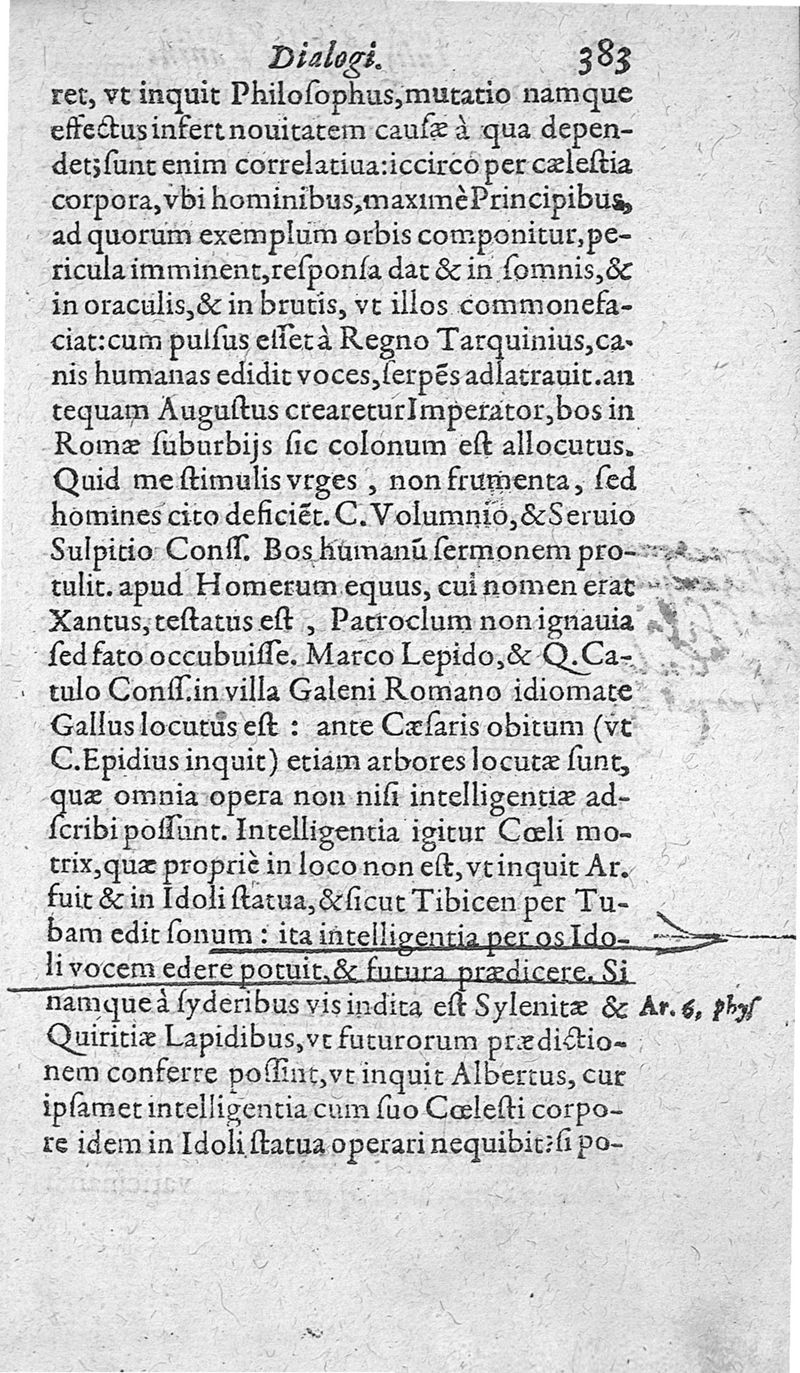 Dialogi. 383
ret, vt inquit Philoſophus,mutatio namque
effectus infert nouitatem cauſæ à qua depen-
det;ſunt enim correlatiua:iccirco per cæleſtia
corpora,vbi hominibus,maximè Principibus,
ad quorum exemplum orbis componitur,pe-
ricula imminent,reſponſa dat & in ſomnis,&
in oraculis,& in brutis, vt illos commonefa-
ciat:cum pulſus eſſet à Regno Tarquinius,ca-
nis humanas edidit voces,ſerpēs adlatrauit.an
tequam Auguſtus crearetur Imperator,bos in
Romæ ſuburbijs ſic colonum eſt allocutus.
Quid me ſtimulis vrges , non frumenta, ſed
homines cito deficiēt. C. Volumnio,& Seruio
Sulpitio Conſſ. Bos humanū ſermonem pro-
tulit. apud Homerum equus, cui nomen erat
Xantus, teſtatus eſt , Patroclum non ignauia
ſed fato occubuiſſe. Marco Lepido,& Q.Ca-
tulo Conſſ.in villa Galeni Romano idiomate
Gallus locutus eſt : ante Cæſaris obitum (vt
C.Epidius inquit) etiam arbores locutæ ſunt,
quæ omnia opera non niſi intelligentiæ ad-
ſcribi poſſunt. Intelligentia igitur Cœli mo-
trix,quæ propriè in loco non eſt,vt inquit Ar.
fuit & in Idoli ſtatua,& ſicut Tibicen per Tu-
bam edit ſonum : ita intelligentia per os Ido-
li vocem edere potuit,& futura prædicere. Si
namque à ſyderibus vis indita eſt Sylenitæ & Ar. 6, phyſ
Quiritiæ Lapidibus,vt futurorum prædictio-
nem conferre poſſint,vt inquit Albertus, cur
ipſamet intelligentia cum ſuo Cœleſti corpo-
re idem in Idoli ſtatua operari nequibit?ſi po-